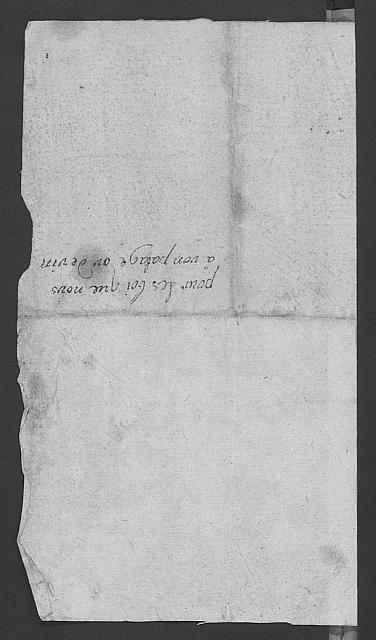 pour les boi que nous
avon patagé au devin